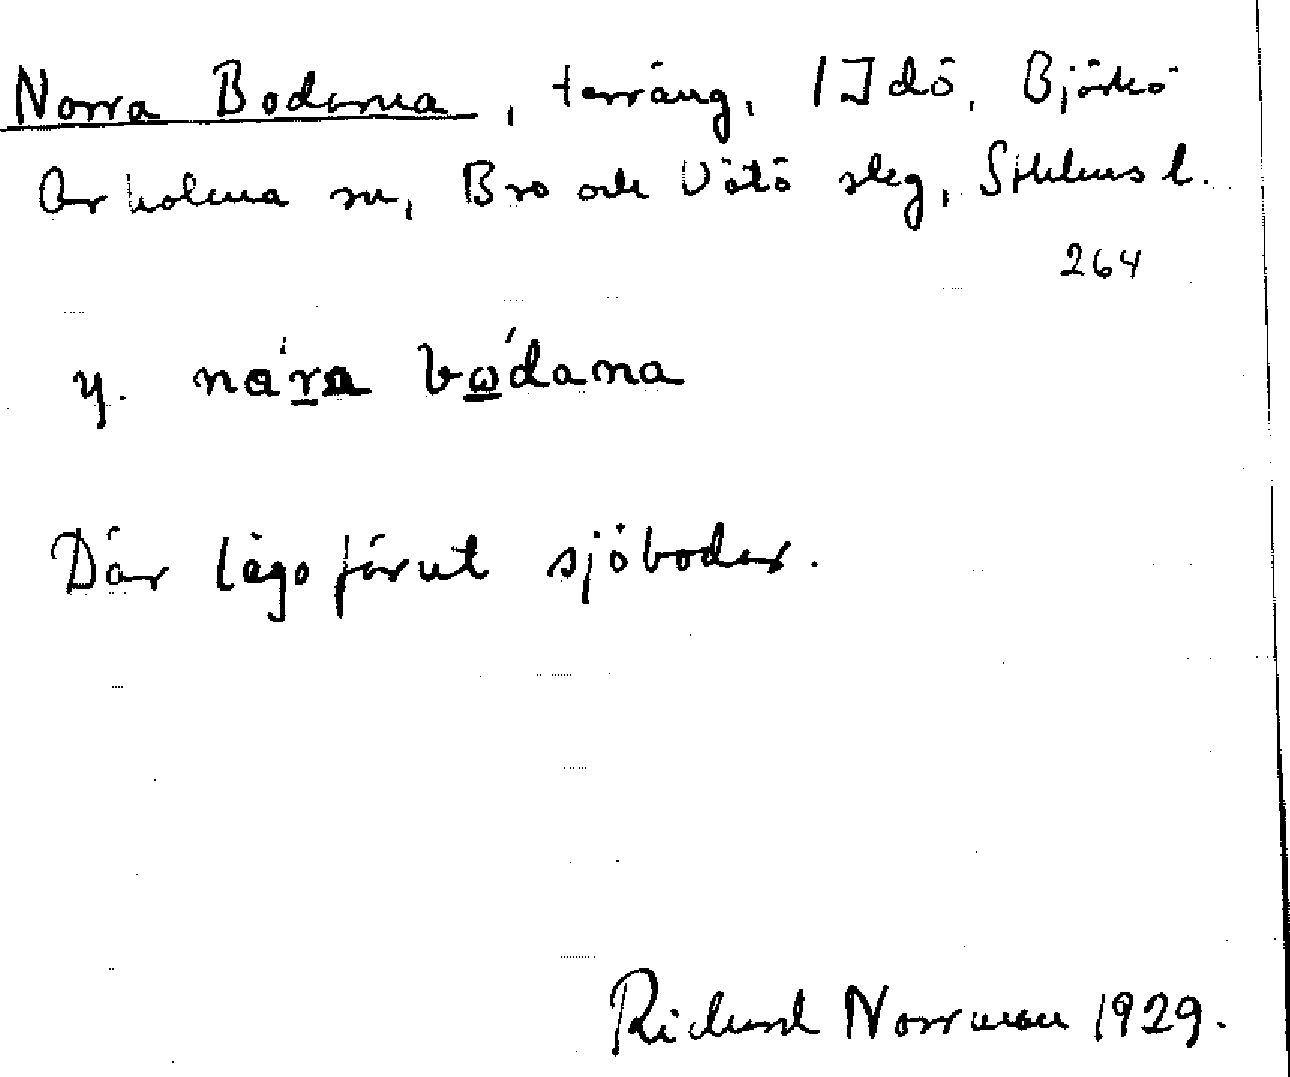 Norra Bodarna, terräng, 1 Idö, Björkö
Arholma sn, Bro och Vätö slg, Sthlms l.
264
y. nára bώ̲dana
Där lågo förut sjöbodar.
Richard Norrman 1929.